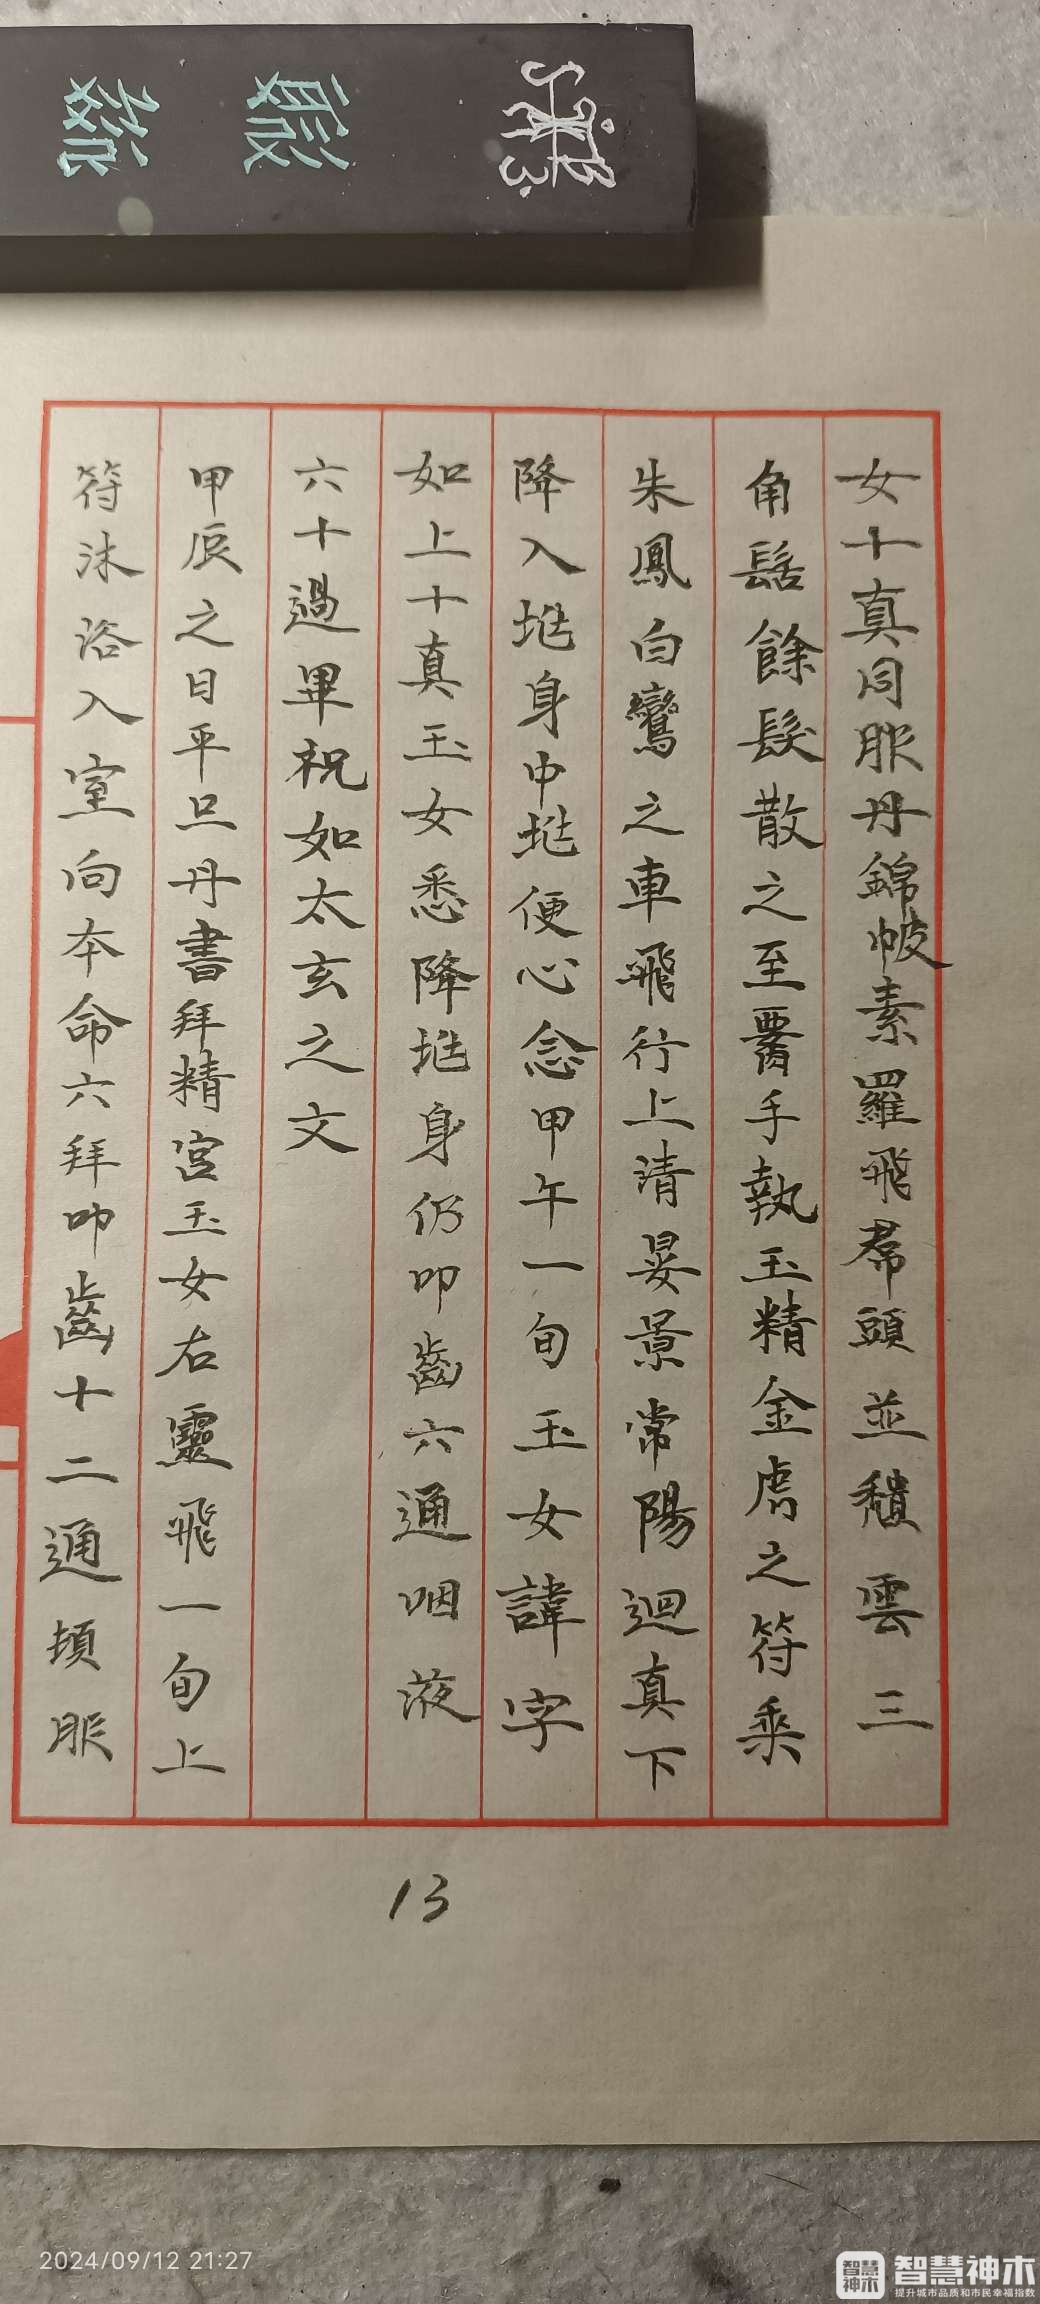 女十真同服丹錦帔素羅飛帬頭並穨雲三
角髻餘髮散之至腰手執玉精金虎之符乘
朱鳳白鸞之車飛行上清晏景常陽迴真下
降入兆身中兆便心念甲午一旬玉女諱字
如上十真玉女悉降兆身仍叩齒六通咽液
六十過畢祝如太玄之文
甲辰之日平旦丹書拜精宮玉女右靈飛一旬上
符沐浴入室向本命六拜叩齒十二通頓服
13
2024/09/12 21:27
智慧神木
智慧神木
提升城市品质和市民幸福指数